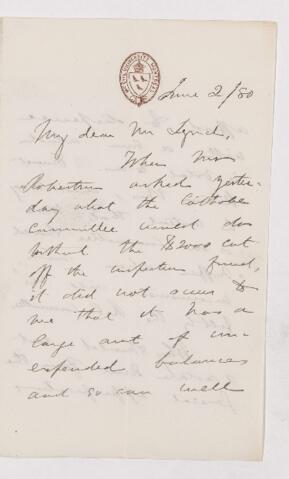 June 2/80
My dear Mr Lynch,
When Miss
Robertson asked yester-
day what the Catholic
Committee would do
without the $2000 cut
off the inspection fund,
it did not occur to
me that it has a
large amt of un-
expended balances
and so can well